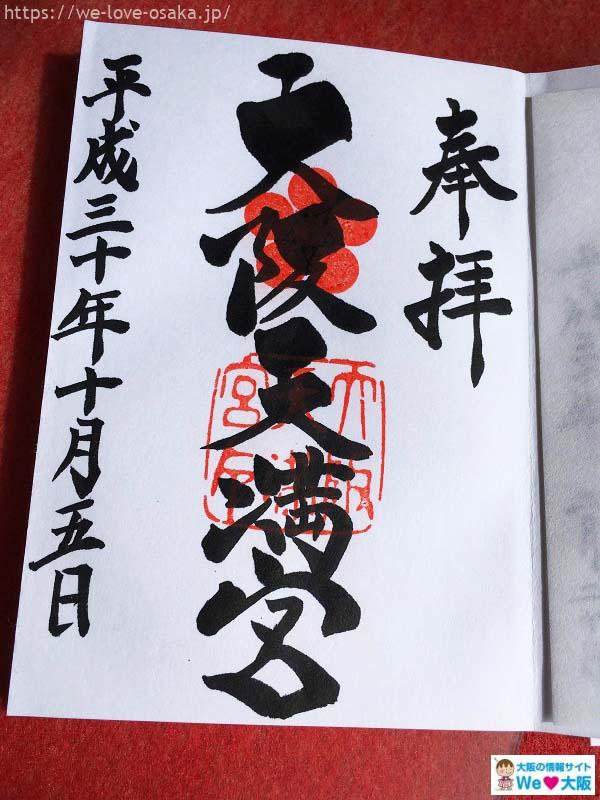 https://we-love-osaka.jp/
奉拝
大阪天満宮
平成三十年十月五日
大阪の情報サイト
We♥大阪